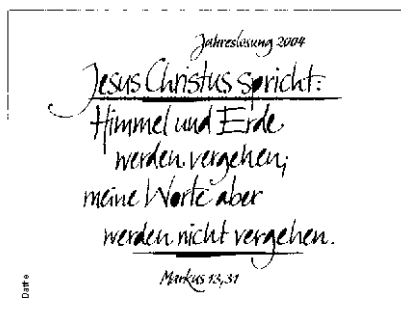 Jahreslosung 2004
Jesus Christus spricht:
Himmel und Erde
werden vergehen;
meine Worte aber
werden nicht vergehen.
Markus 13,31